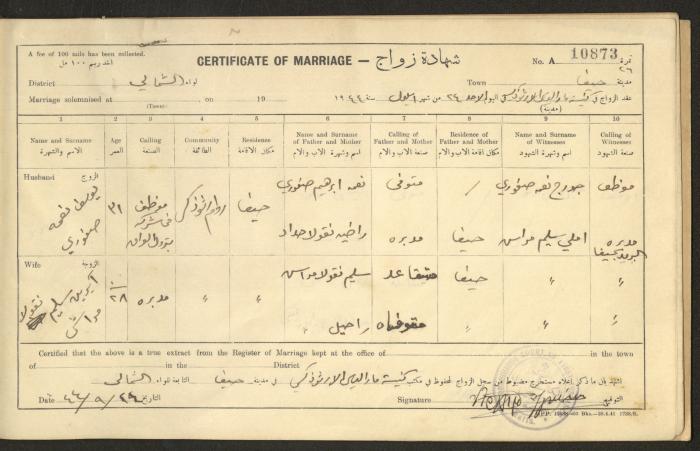 A fee of 100 mils has been collected.
CERTIFICATE OF MARRIAGE — شهادة زواج
No. A 10873 نمرة
٢٦
District الشمالي لواء
Town حيفا مدينة
Marriage solemnised at , on 19
(Town)
عقد الزواج في كنيسة مار الياس الارثوذكس في اليوم الاحد ٢٤ من شهر ايلول سنة ١٩٤٤
(مدينة)
1 2 3 4 5 6 7 8 9 10
Name and Surname الاسم والشهرة
Age العمر
Calling الصنعة
Community الطائفة
Residence مكان الاقامة
Name and Surname of Father and Mother اسم وشهرة الاب والام
Calling of Father and Mother صنعة الاب والام
Residence of Father and Mother مكان اقامة الاب والام
Name and Surname of Witnesses اسم وشهرة الشهود
Calling of Witness صنعة الشهود
Husband الزوج
يوسف نعمه صفوري
٣١
موظف في شركة بترول العراق
روم ارثوذكس
حيفا
نعمه ابراهيم صفوري
متوفي
/
جورج نعمه صفوري
موظف
راضيه نقولا حداد
مدبره
حيفا
املي سليم مراس
مدبره
Wife الزوجة
ايرين سليم نقولا
٢٨
مدبره
"
"
سليم نقولا مراس
حيفا
"
"
راحيل "
"
"
"
Certified that the above is a true extract from the Register of Marriage kept at the office of in the town
of in the District
اشهد بان ما ذكر اعلاه مستخرج مضبوط من سجل الزواج المحفوظ في مكتب كنيسة مار الياس الارثوذكس في مدينة حيفا التابعة للواء الشمالي
Date ٢٤/٩/٤٤ التاريخ
Signature التوقيع